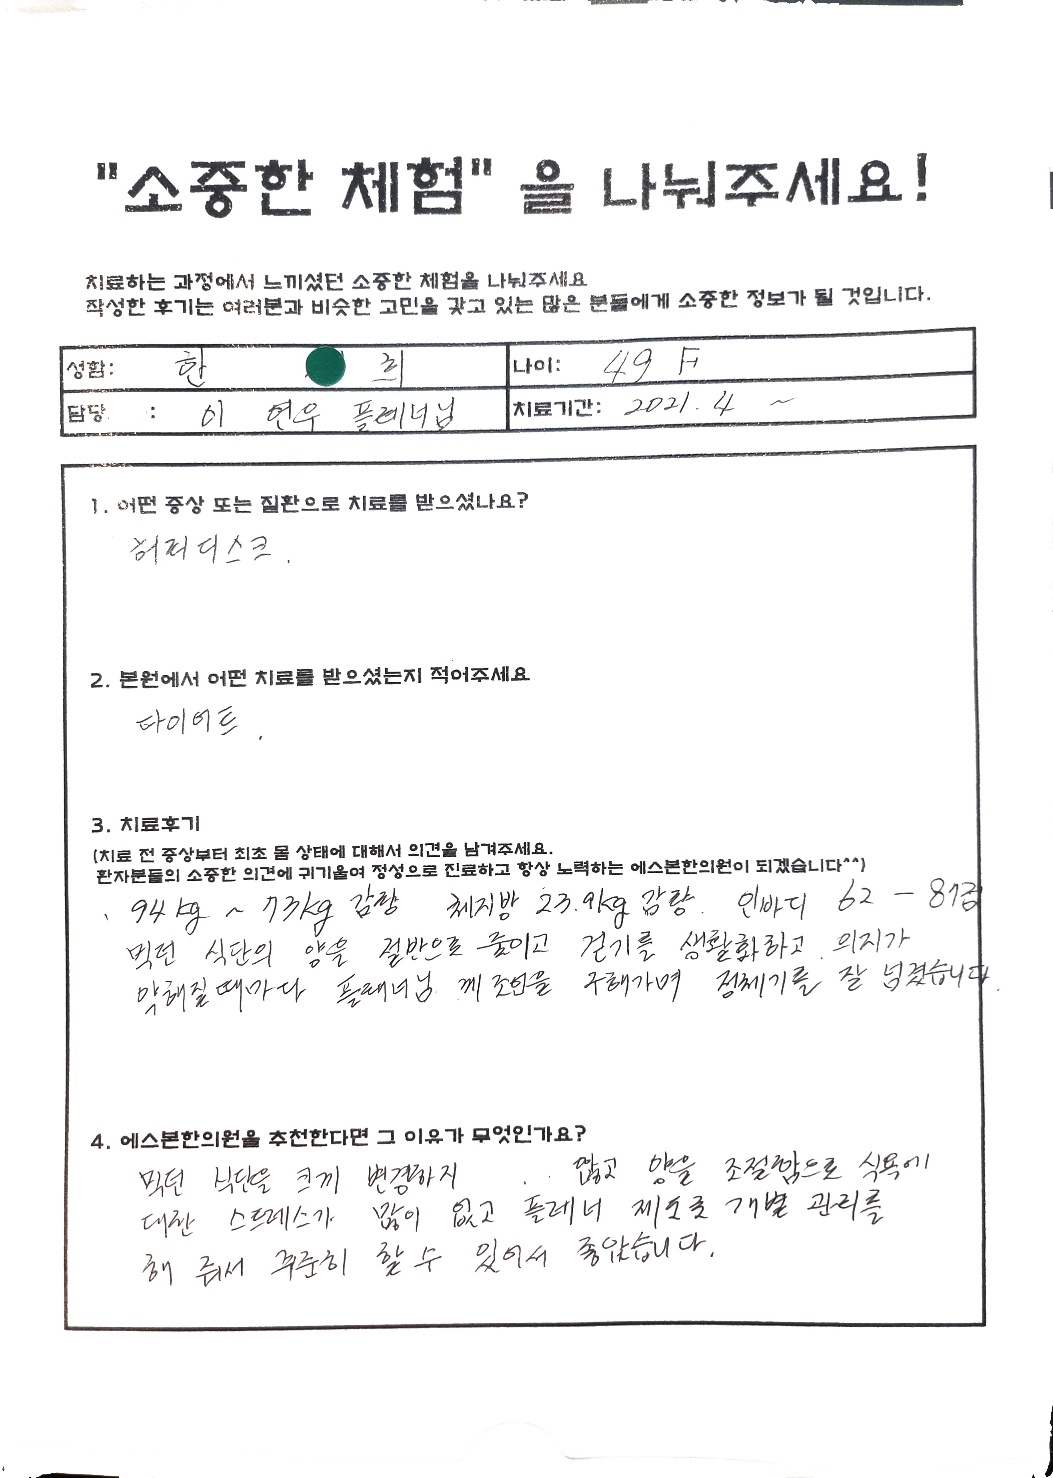 "소중한 체험" 을 나눠주세요!
치료하는 과정에서 느끼셨던 소중한 체험을 나눠주세요
작성한 후기는 여러분과 비슷한 고민을 갖고 있는 많은 분들에게 소중한 정보가 될 것입니다.
성함: 한 희 나이: 49 F
담당 : 이 연우 플레너님 치료기간: 2021. 4 ~
1. 어떤 증상 또는 질환으로 치료를 받으셨나요?
허리디스크.
2. 본원에서 어떤 치료를 받으셨는지 적어주세요
다이어트.
3. 치료후기
(치료 전 증상부터 최초 몸 상태에 대해서 의견을 남겨주세요.
환자분들의 소중한 의견에 귀기울여 정성으로 진료하고 항상 노력하는 에스본한의원이 되겠습니다^^)
94kg ~ 73kg 감량 체지방 23.9kg 감량. 인바디 62 - 81점
먹던 식단의 양을 절반으로 줄이고 걷기를 생활화하고 의지가
약해질때마다 플래너님 께 조언을 구해가며 정체기를 잘 넘겼습니다.
4. 에스본한의원을 추천한다면 그 이유가 무엇인가요?
먹던 식단을 크게 변경하지 .. 않고 양을 조절함으로 식욕에
대한 스트레스가 많이 없고 플레너 제도로 개별 관리를
해 줘서 꾸준히 할 수 있어서 좋았습니다.